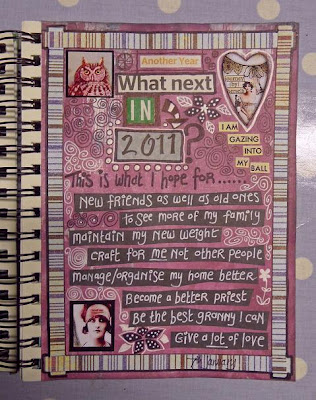 Another Year
What next
IN
2011?
I AM
GAZING
INTO
MY
BALL
This is what I hope for......
New friends as well as old ones
to see more of my family
maintain my new weight
craft for me not other people
manage/organise my home better
Become a better priest
Be the best granny I can
Give a lot of love